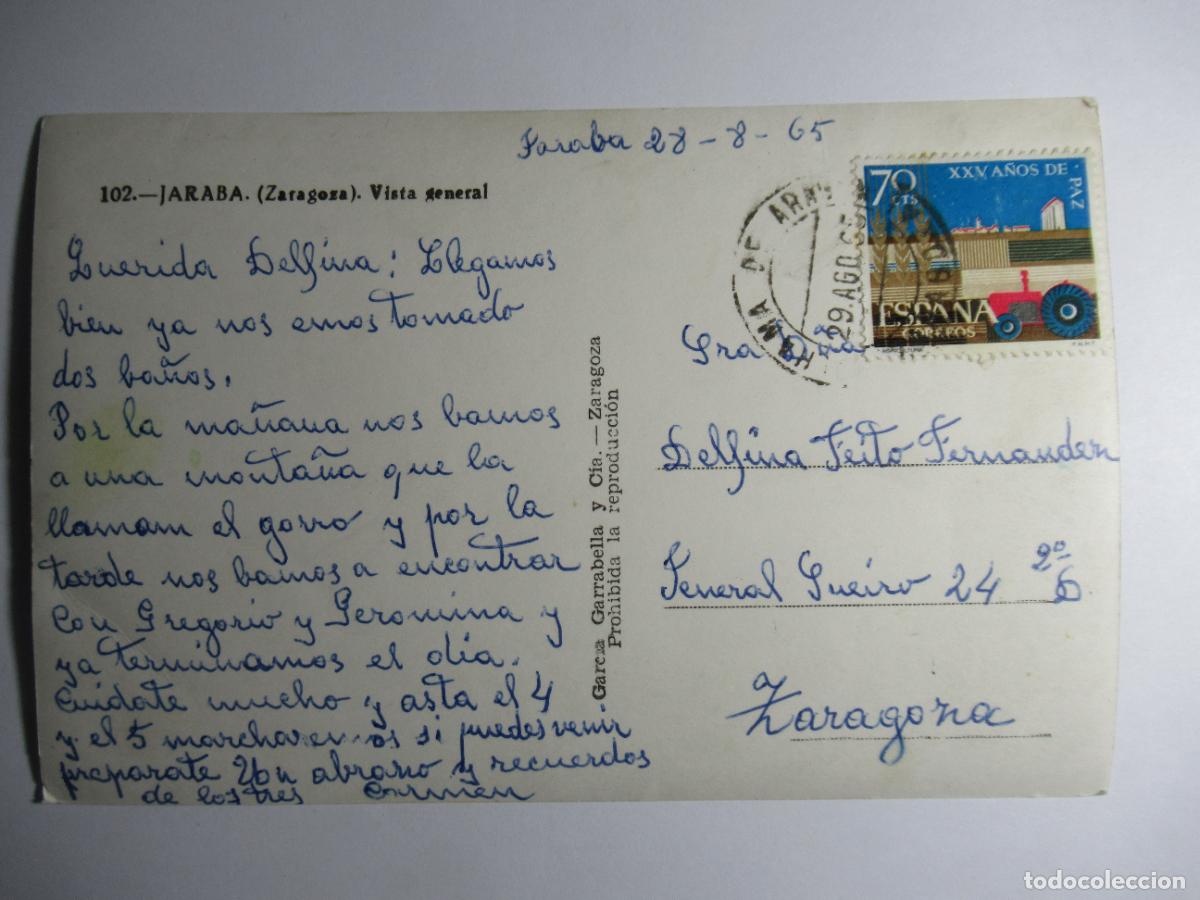 Jaraba 28-8-65
102.—JARABA. (Zaragoza). Vista general
Querida Delfina: Llegamos
bien ya nos emos tomado
dos baños.
Por la mañana nos bamos
a una montaña que la
llamam el gorro y por la
tarde nos bamos a encontrar
Con Gregorio y Geronima y
ya terminamos el día.
Cuidate mucho y asta el 4
y el 5 marcharemos si puedes venir
preparate un abrazo y recuerdos
de los tres Carmen
Garcia Garrabella y Cía.—Zaragoza
Prohibida la reproducción
HAMA DE ARA
29 AGO 65
70 CTS
XXV AÑOS DE PAZ
ESPAÑA
CORREOS
F.N.M.T.
Sra Dña
Delfina Feito Fernandez
General Sueiro 24 2º
6
Zaragoza
todocoleccion